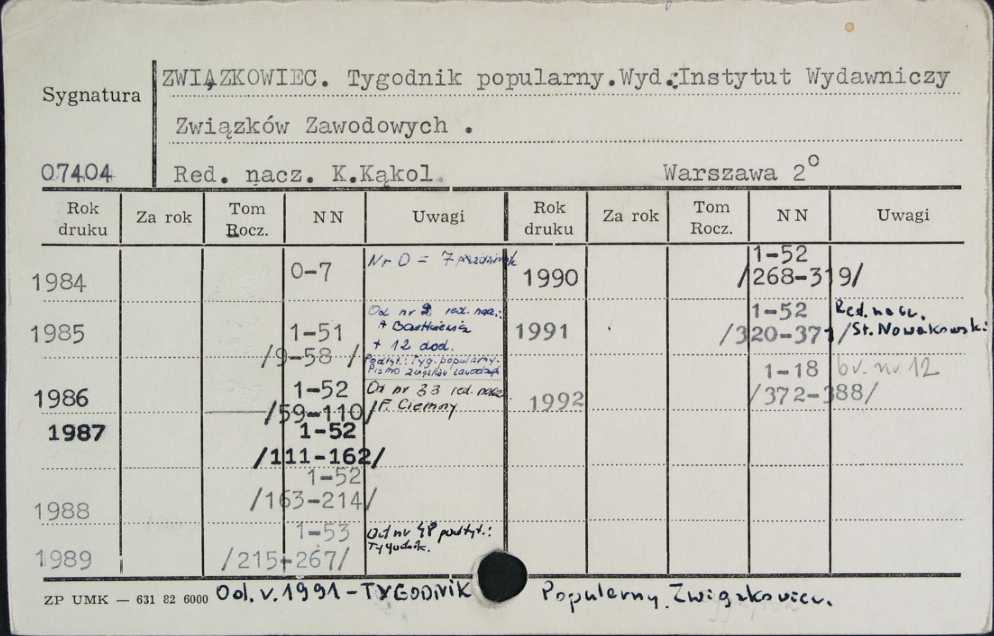 ZWIĄZKOWIEC. Tygodnik popularny. Wyd.: Instytut Wydawniczy
Sygnatura
Związków Zawodowych .
07404 Red. nacz. K.Kąkol. Warszawa 2º
Rok druku Za rok Tom Rocz. NN Uwagi Rok druku Za rok Tom Rocz. NN Uwagi
1984 0-7 Nr 0 = 7 październik
1990 1-52 /268-319/
1985 1-51 /9-58 / Od nr 2 red. nacz.:
+ 12 dod.
Podtyt.: Tyg. popularny.
Pismo związków zawodowych
1991 1-52 /320-371/ Red. nacz. St. Nowakowski
1986 1-52 /59-110/ Od nr 33 red. nacz.
F. Ciemny
1992 1-18 /372-388/ br. nr 12
1987 1-52 /111-162/
1988 1-52 /163-214/
1989 1-53 /215-267/ Od nr 48 podtyt.:
Tygodnik.
ZP UMK — 631 82 6000 Od. r. 1991 - TYGODNIK Popularny. Związkowiec.